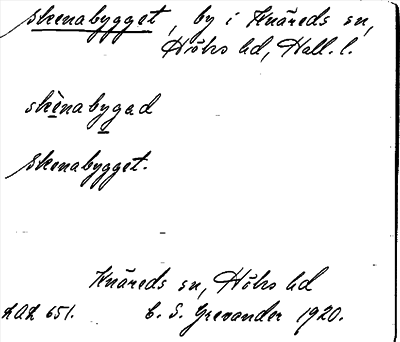 Skenabygget, by i Knäreds sn,
Höks hd, Hall. l.
skènabygad
Skenabygget.
Knäreds sn, Höks hd
LAL 651. C. S. Grevander 1920.